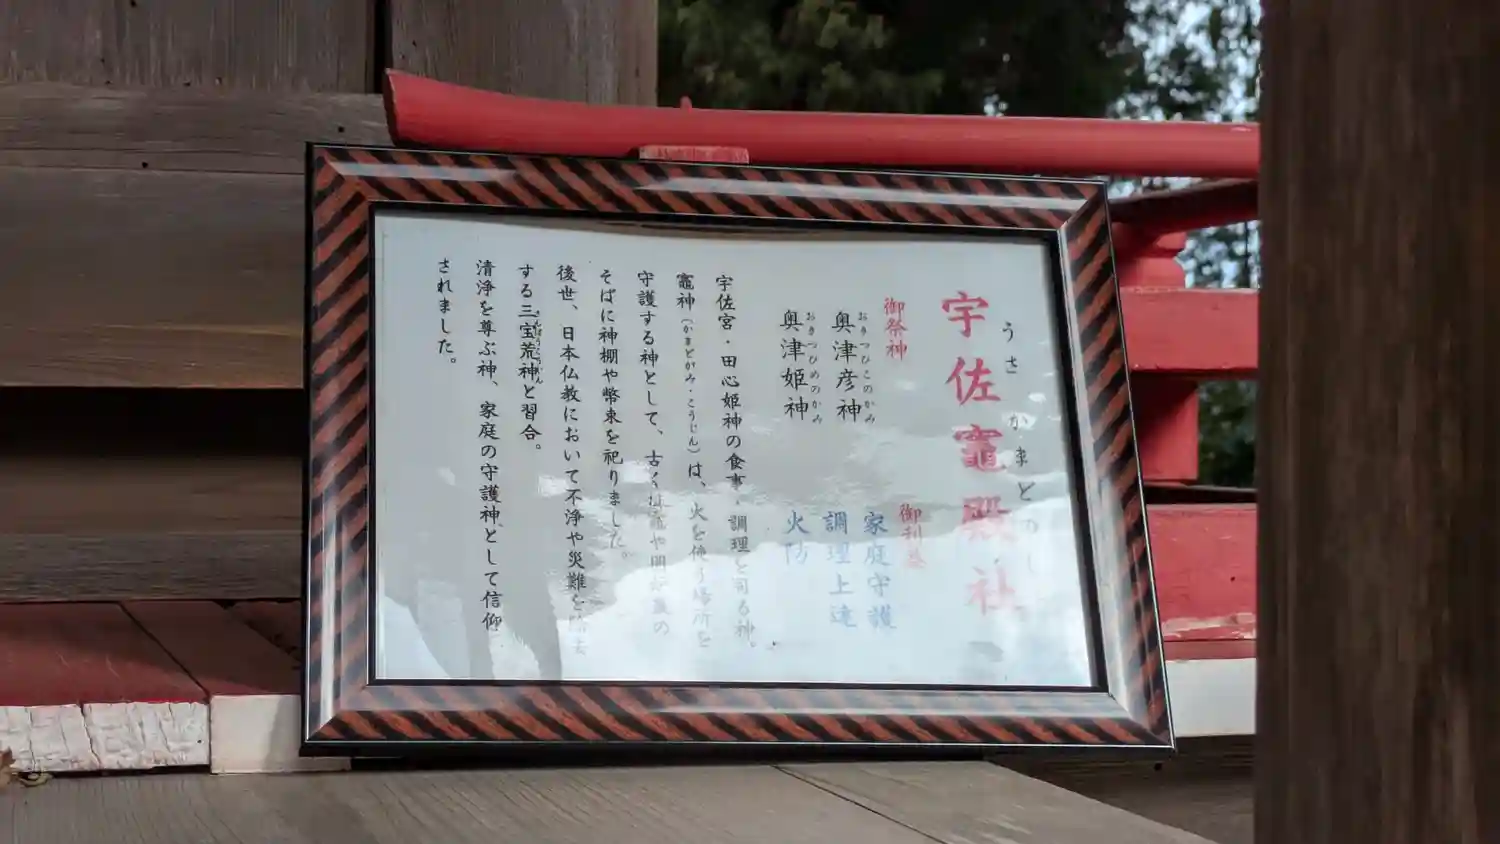 宇佐竈殿社
うさかまどのし
御祭神
奥津彦神
おきつひこのかみ
奥津姫神
おきつひめのかみ
御利益
家庭守護
調理上達
火防
宇佐宮・田心姫神の食事・調理を司る神。
竈神（かまどがみ・こうじん）は、火を使う場所を
守護する神として、古くは竈や囲炉裏の
そばに神棚や幣束を祀りました。
後世、日本仏教において不浄や災難を除去
する三宝荒神と習合。
さんぽうこうじん
清浄を尊ぶ神、家庭の守護神として信仰
されました。